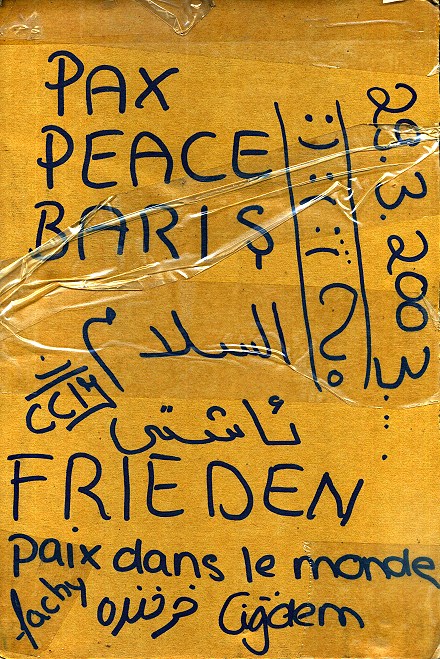 PAX
PEACE
BARIŞ
السلام
ئاشتی
FRIEDEN
paix dans le monde
fachy
Çiğdem
29.3.2003....